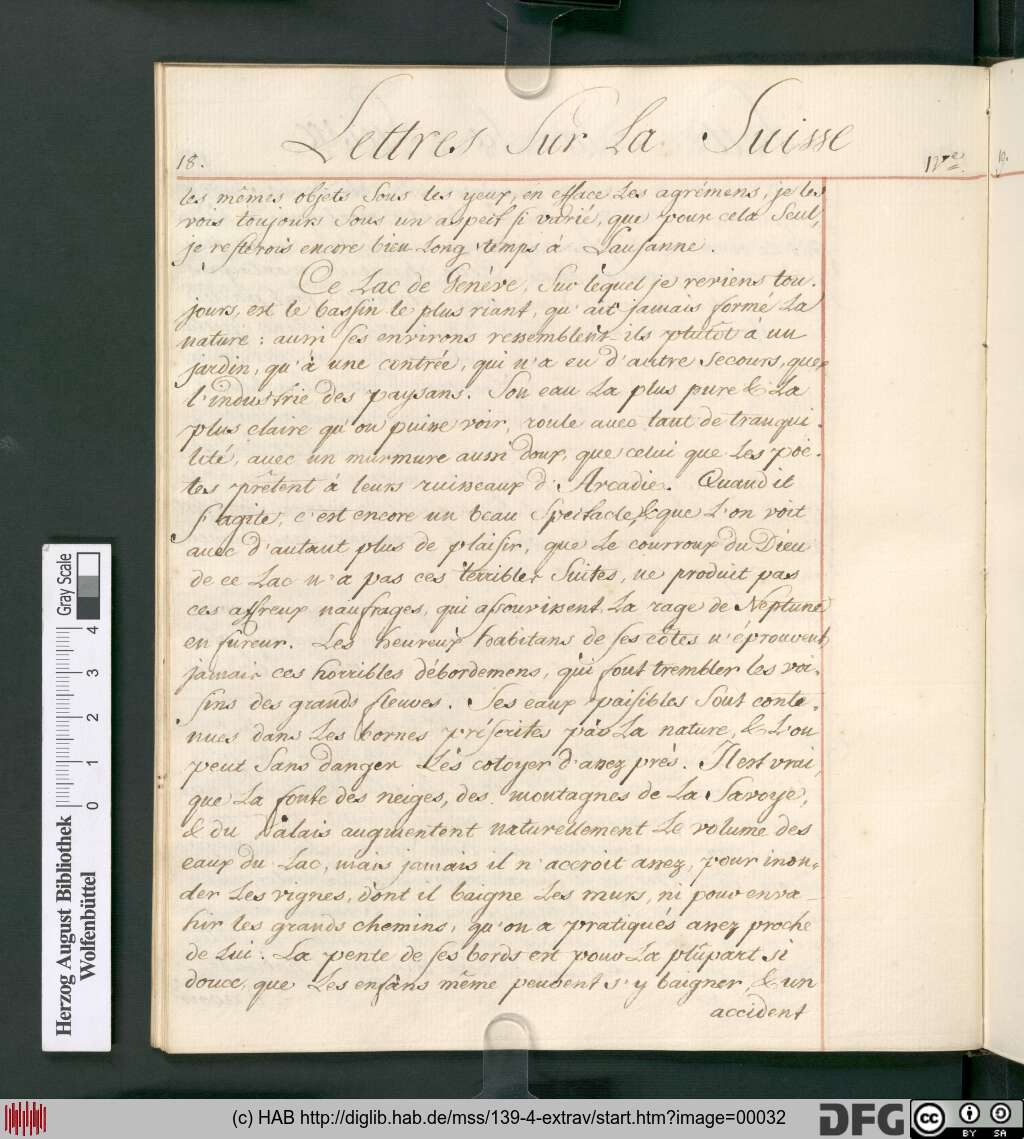 Lettres Sur La Suisse
18.
les mêmes objets sous les yeux, en efface Les agrémens, je les
vois toujours sous un aspect si varié, que pour cela seul,
je resterois encore bien Long temps à Lausanne.
Ce Lac de Genéve, sur lequel je reviens tou.
jours, est le bassin le plus riant, qu'ait jamais formé La
nature; aussi ses environs ressemblent-ils plutot à un
jardin, qu'à une contrée, qui n'a eu d'autre secours, que
l'industrie des paysans. Son eau La plus pure & La
plus claire qu'on puisse voir, roule avec tant de tranqui.
lité, avec un murmure aussi doux, que celui que Les poë.
tes prêtent à leurs ruisseaux d'Arcadie. Quand il
s'agite, c'est encore un beau Spectacle, & que L'on voit
avec d'autant plus de plaisir, que Le courroux du Dieu
de ce Lac n'a pas ces terribles suites, ne produit pas
ces affreux naufrages, qui assouvissent La rage de Neptune
en fureur. Les heureux habitans de ses côtes n'éprouvent
jamais ces horribles débordemens, qui font trembler les voi.
sins des grands fleuves. Ses eaux paisibles sont conte.
nues dans Les bornes préscrites par La nature, & L'on
peut sans danger Les cotoyer d'assez prés. Il est vrai,
que La fonte des neiges, des montagnes de La Savoye,
& du Valais augmentent naturellement Le volume des
eaux du Lac, mais jamais il n'accroit assez, pour inon-
der Les vignes, dont il baigne Les murs, ni pour enva-
hir les grands chemins, qu'on a pratiqués assez proche
de Lui. La pente de ses bords est pour La plûpart si
douce, que Les enfans même peuvent s'y baigner, & un
accident
19.
Herzog August Bibliothek
Wolfenbüttel
0 1 2 3 4
Gray Scale
(c) HAB http://diglib.hab.de/mss/139-4-extrav/start.htm?image=00032
DFG
cc BY SA